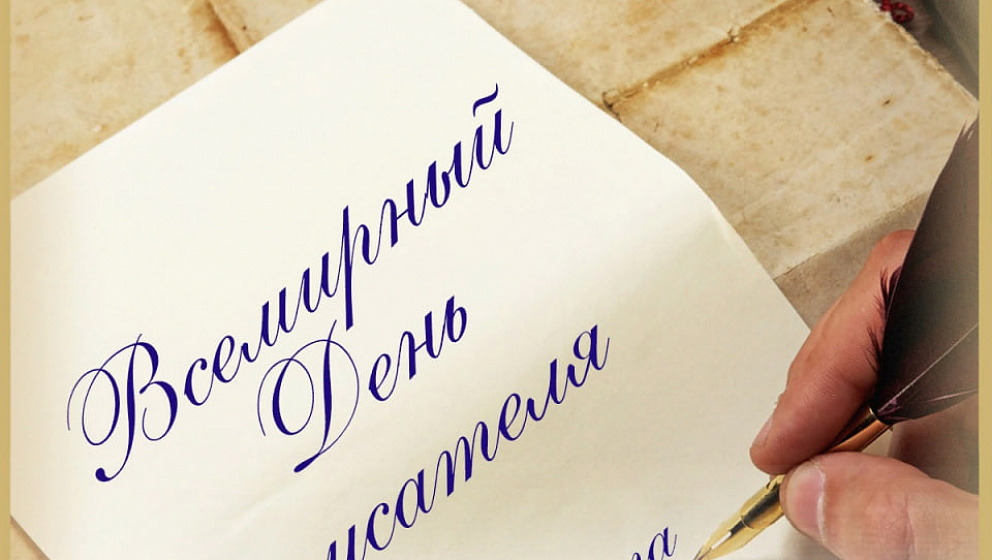 Всемирный
День
исателя
та